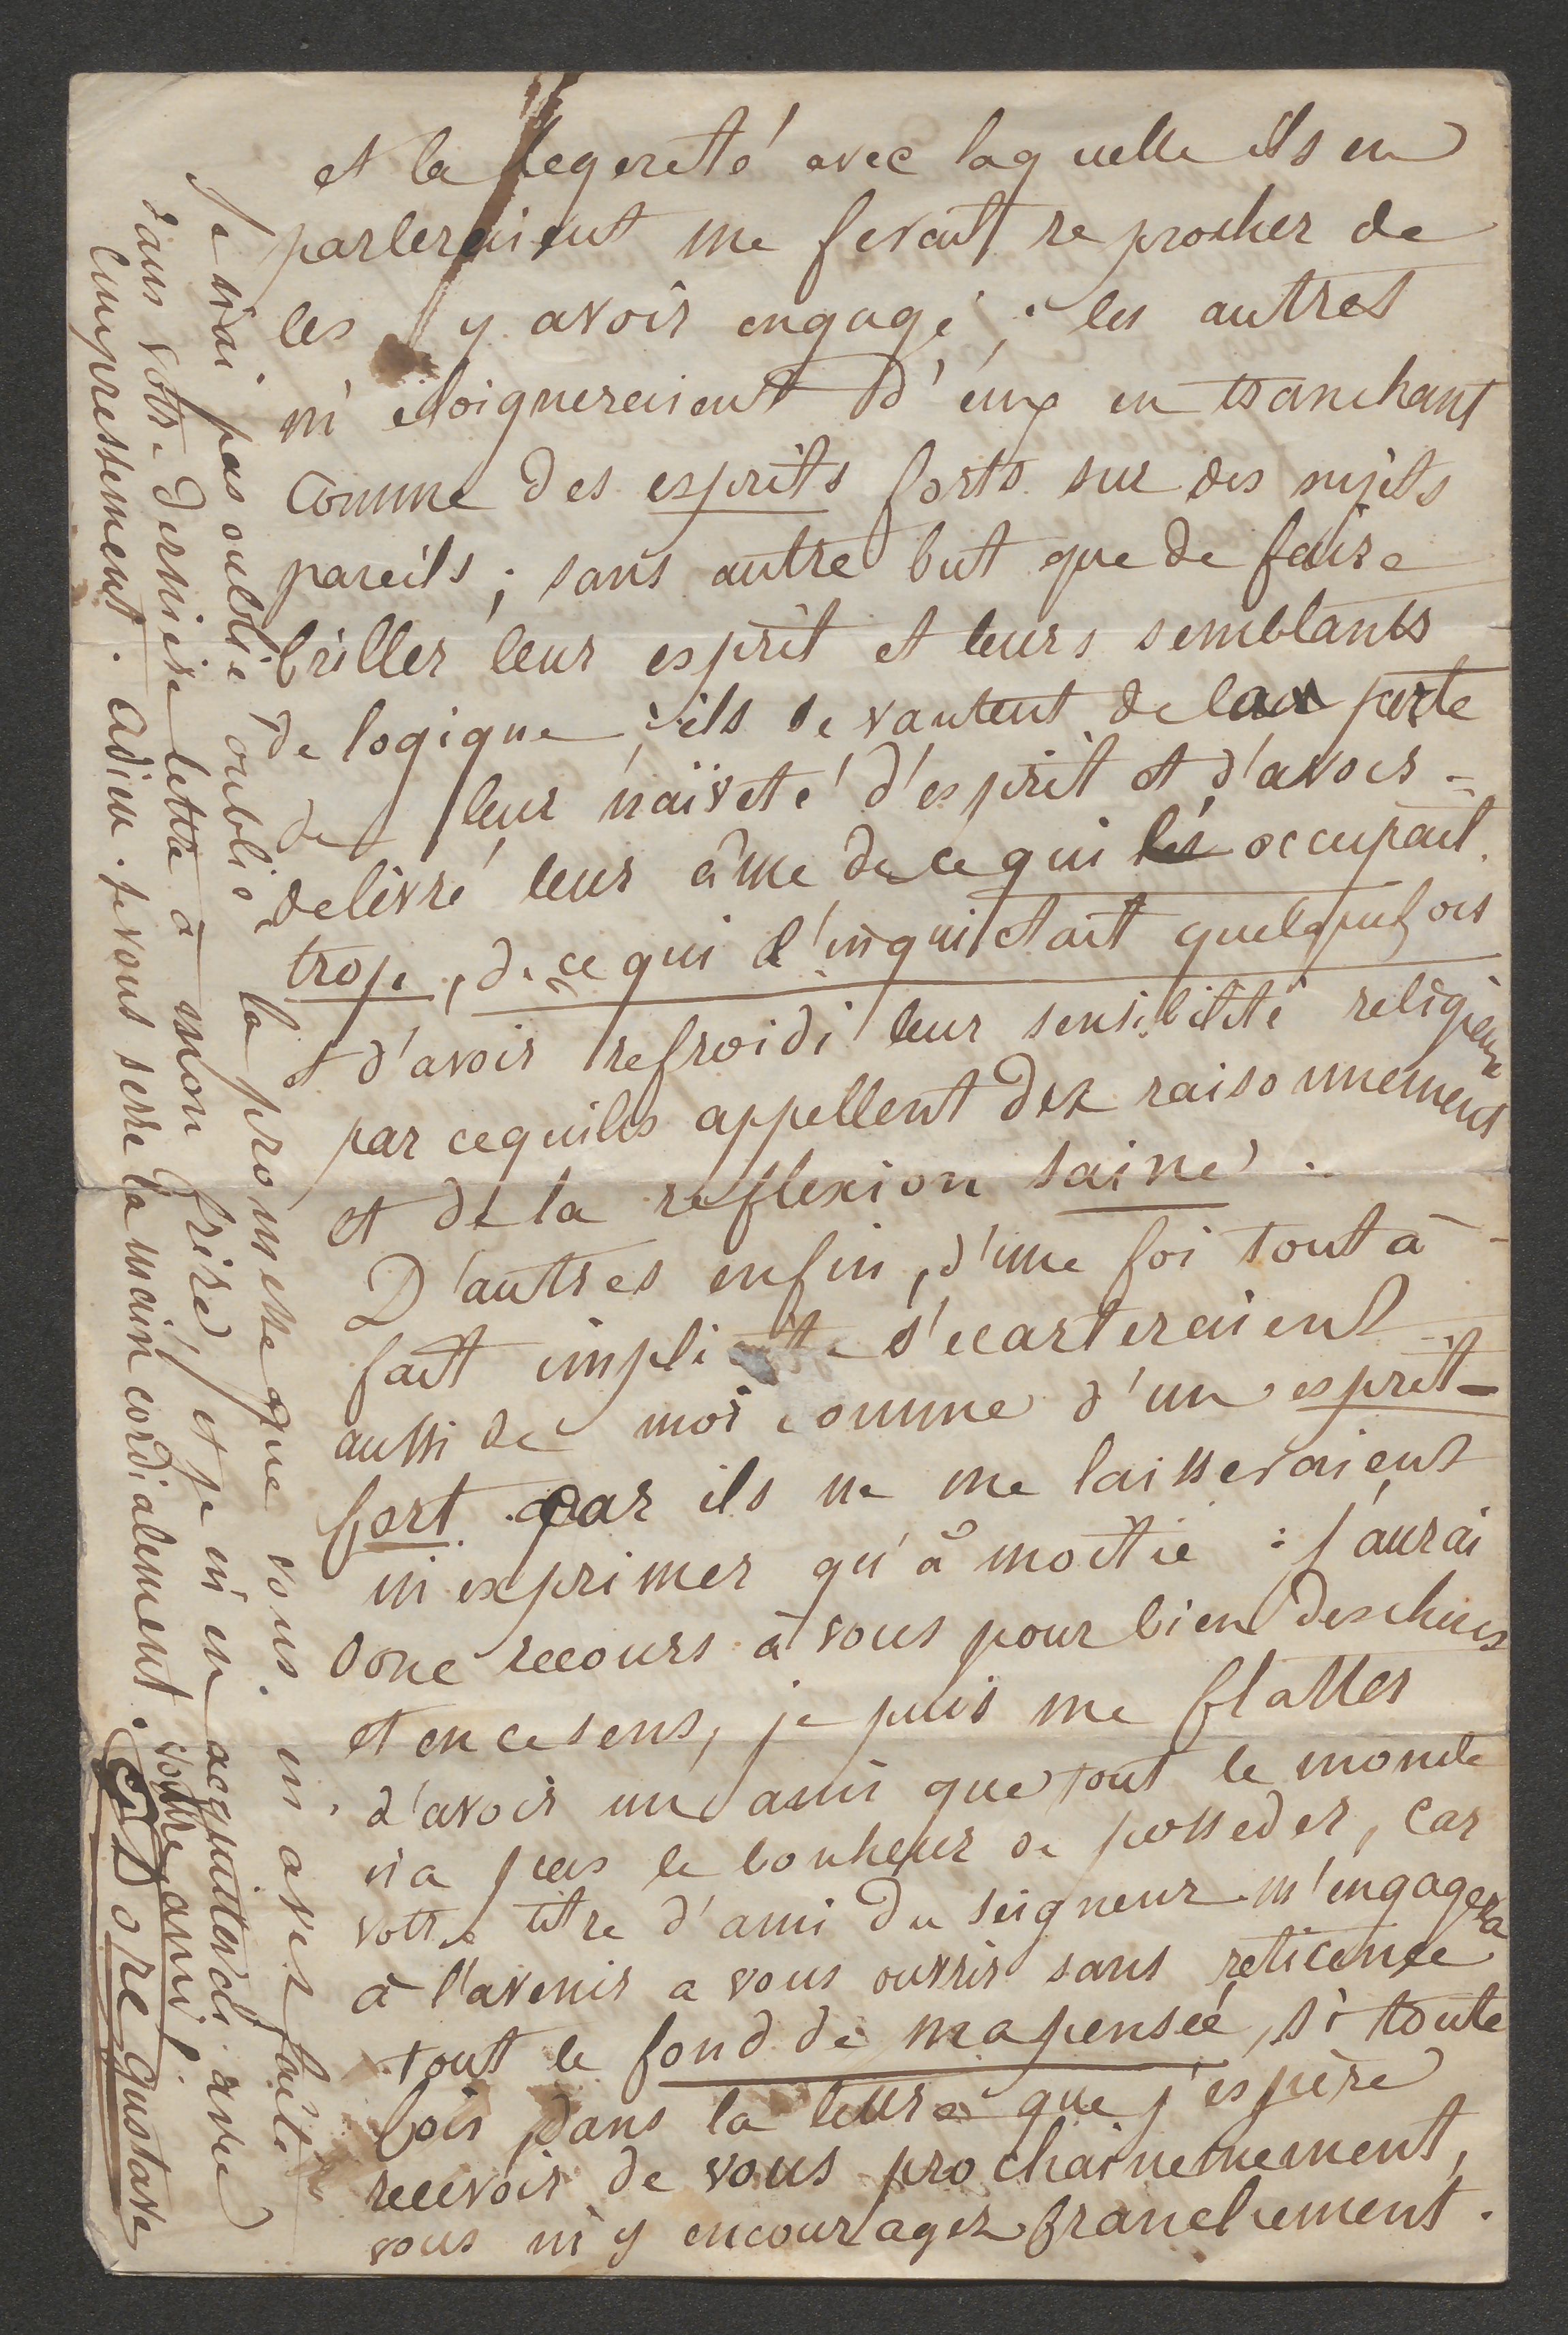 et la legereté avec laquelle ils en
parleraient me ferait reprocher de
les y avoir engagé ; les autres
m'éloigneraient d'eux en tranchant
comme des esprits forts sur des sujets
pareils ; sans autre but que de faire
briller leur esprit et leurs semblants
de logique ; ils se vantent de la perte
de leur naïveté d'esprit et d'avoir
delivré leur âme de ce qui les occupait
trop, de ce qui l'inquietait quelquefois
et d'avoir refroidi leur sensibilité religieuse
par cequ'ils appellent des raisonnements
et de la reflexion saine.
D'autres enfin, d'une foi tout à
fait implicite s'ecarteraient
aussi de moi comme d'un esprit-
fort car ils ne me laisseraient
m'exprimer qu'à moitie : j'aurai
donc recours à vous pour bien des choses
et en ce sens, je puis me flatter
d'avoir un ami que tout le monde
n'a pas le bonheur de posseder, car
votre titre d'ami du seigneur m'engagera
à l'avenir a vous ouvrir sans reticence
tout le fond de ma pensée, si toute
fois, dans la lettre que j'espère
recevoir de vous prochainemement,
vous m'y encouragez franchement.
Je n'ai pas oublié oublié la promesse que vous m'avez faite
dans votre derniere lettre à mon frère, et je m'en acquitterai avec
empressement. adieu. je vous serre la main cordialement.
votre ami,
Doré gustave